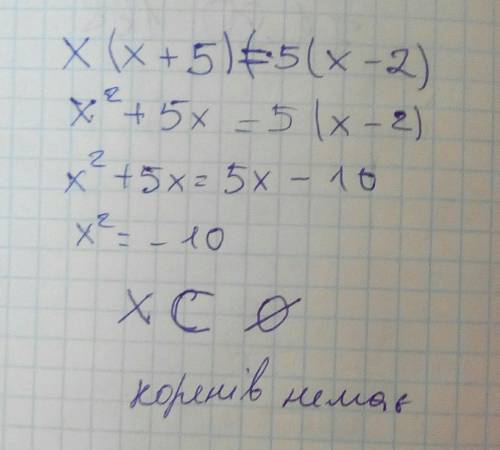 x(x+5)=5(x-2)
x²+5x=5(x-2)
x²+5x=5x-10
x²=-10
x ⊂ ∅
коренів немає